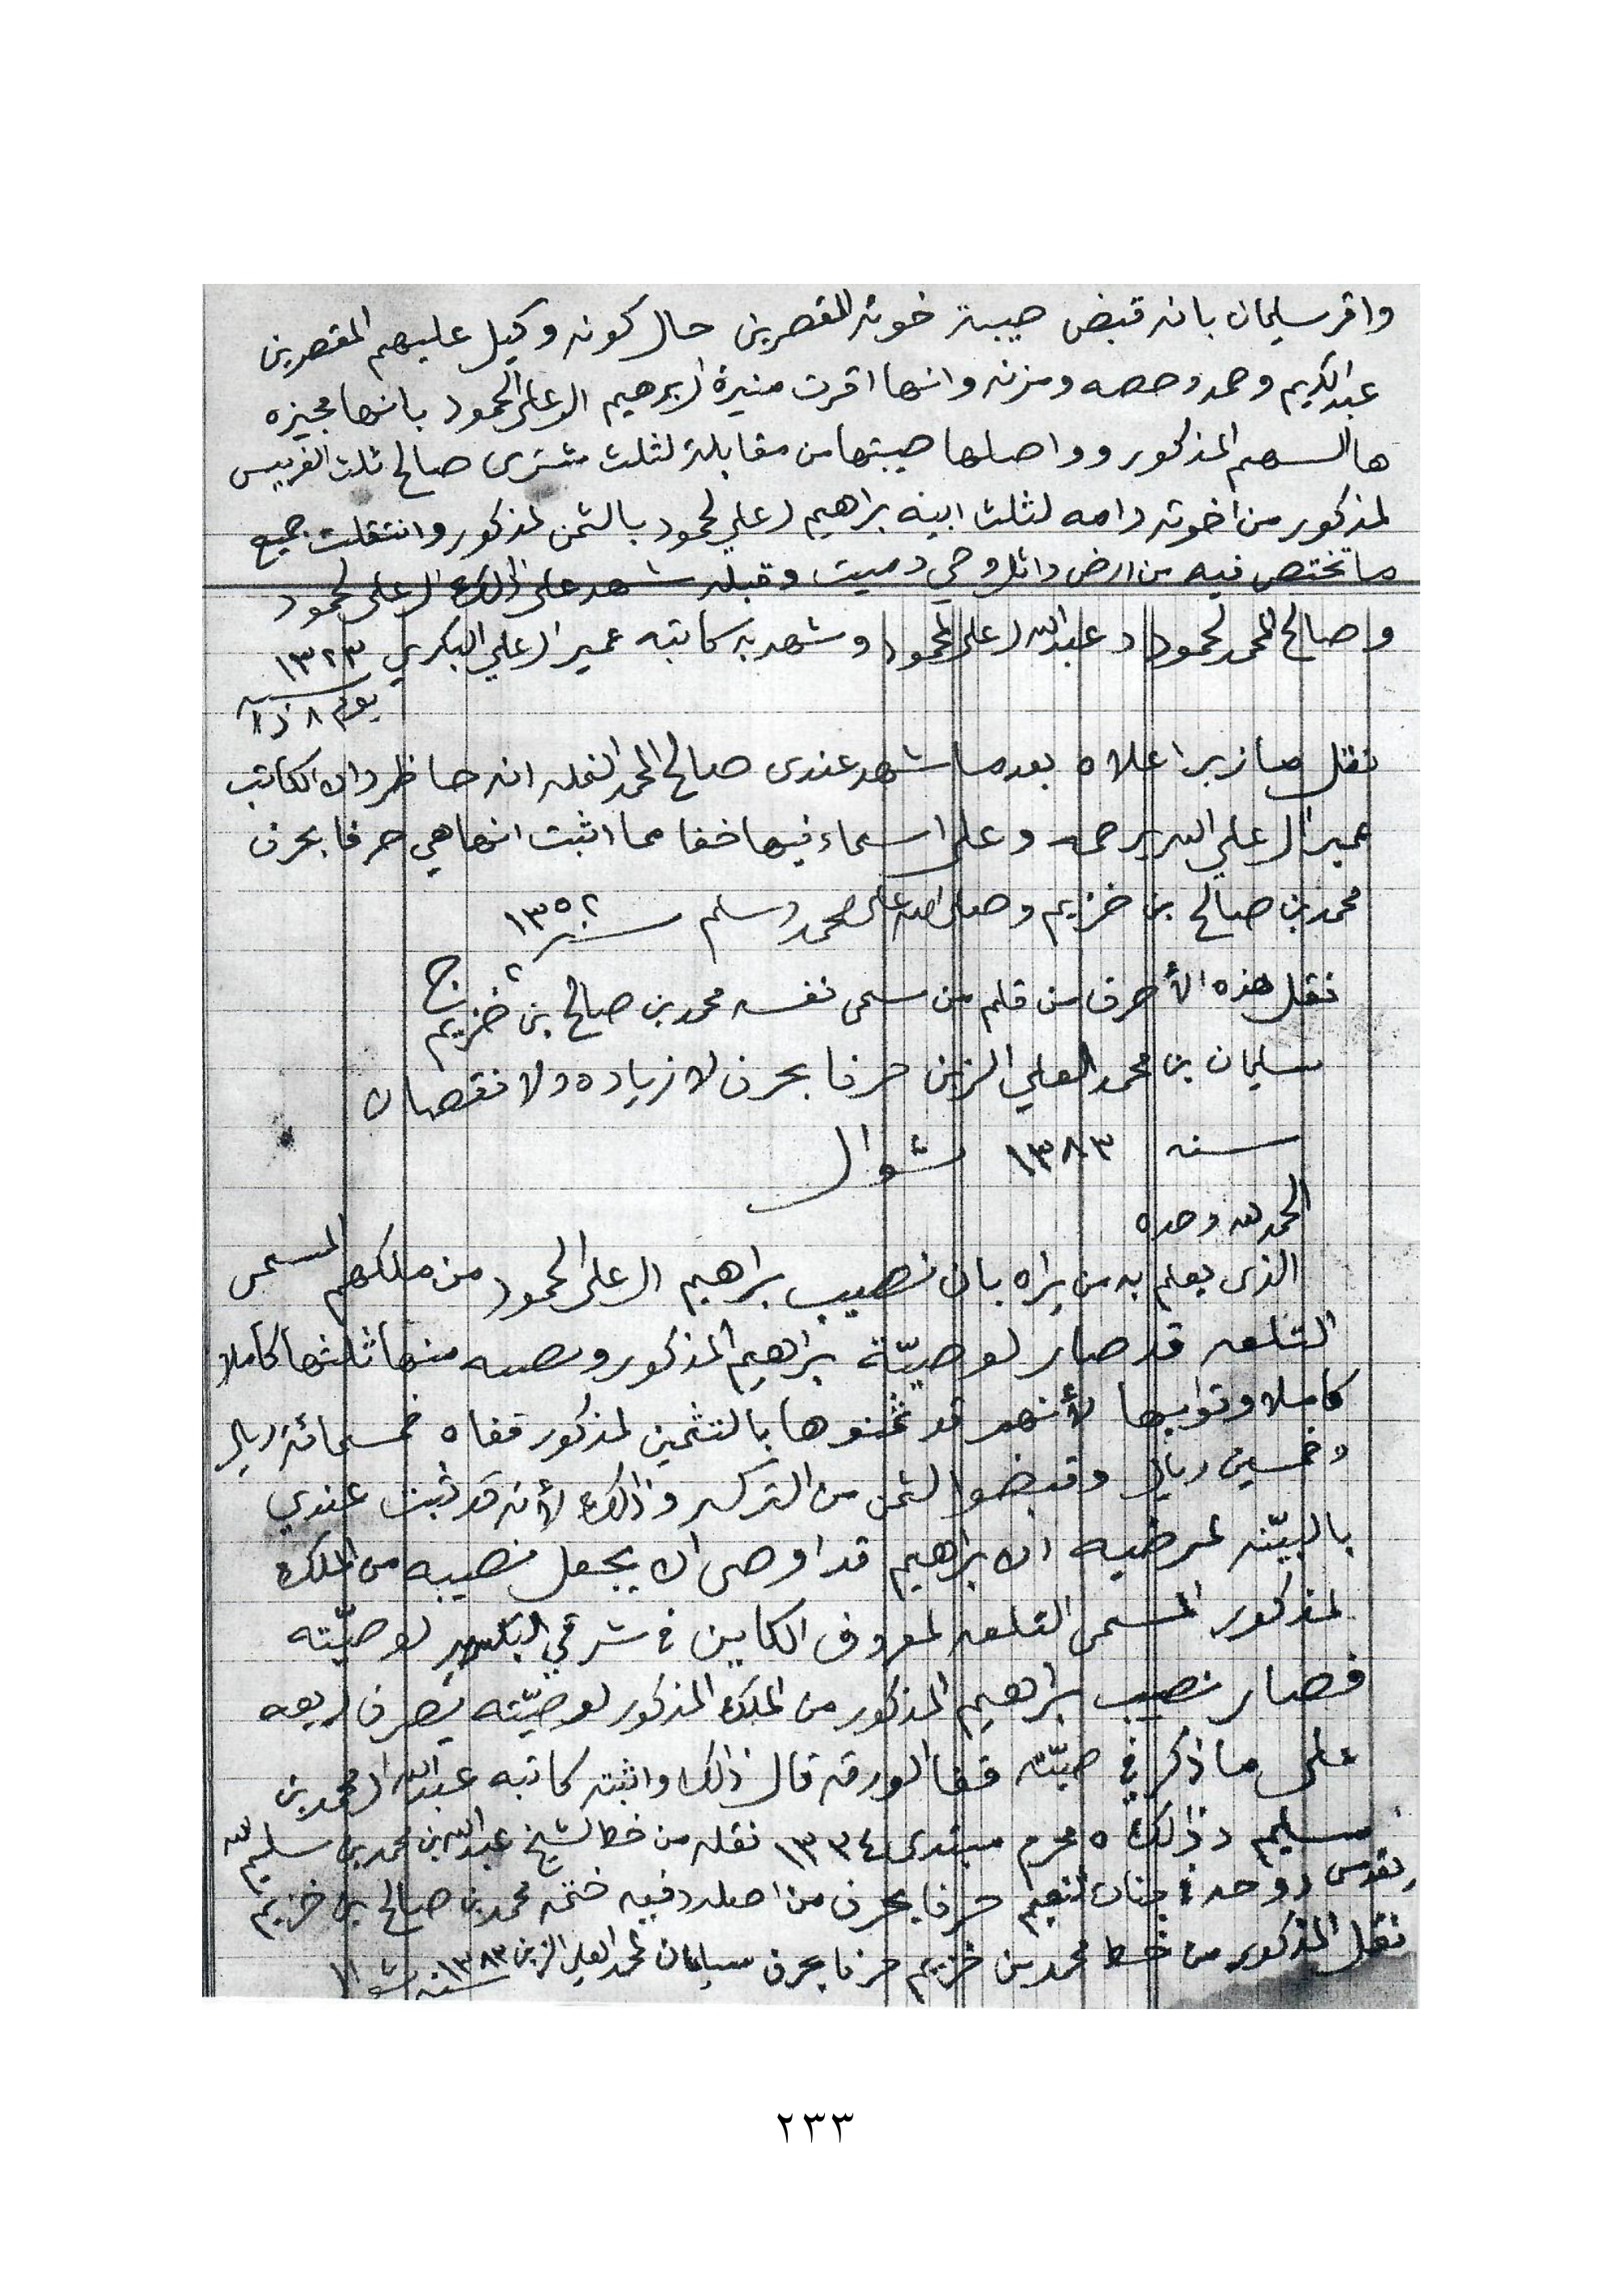 واقر سليمان بانه قبض صيبة خوته القصرين حال كونه وكيل عليهم المقصرين
عبدالكريم وحمد وحصه ومزنه وانها اقرت منيرة ال برهيم ال علي الحمود بانها مجيزه
هالسهم المذكور وواصلها صيبتها من مقابلة لثلث مشترى صالح ثلث الغريس
لمذكور من اخوته وامه لثلث ابيه براهيم ال علي لحمود بالثمن لمذكور وانتقلت جميع
ما تختص فيه من ارض واثل وحي وميت وقبله شهد على ذلك ال علي لحمود
وصالح المحمد لحمود وعبدالله ال علي لحمود وشهد به كاتبه عمير ال علي البكري ١٣٢٣
يوم ٨ ذا سنه
نقل ما زبر اعلاه بعدما شهد عندى صالح المحمد النمله انه حاظر وان الكاتب
عمير ال علي الله يرحمه وعلى اسماء فيها خفا مما اثبت انها هي حرفا بحرف
محمد بن صالح بن خزيم وصلى الله على محمد وسلم سنة ١٣٥٢
نقل هذه الأحرف من قلم من سمى نفسه محمد بن صالح بن خزيم
سليمان بن محمد العلي الزبن حرفا بحرف لا زياده ولا نقصان
سنه ١٣٨٣ شوال
الحمد لله وحده
الذى يعلم به من يراه بان نصيب براهيم ال علي الحمود من ملكهم المسمى
التلعه قد صار لوصيّة براهيم المذكور ونصيبه منها ثلثها كاملا
كاملا وتوابعها لأنهم قد ثمنوها بالتثمين لمذكور قفاه خمسمائة ريال
وخمسين ريال وقبضوا لثمن من التركه وذلك لأنه قد ثبت عندي
بالبيّنه لمرضيه ان براهيم قد اوصى ان يجعل نصيبه من الملك
لمذكور المسمى التلعه لمعروف الكاين في شرقي لوصيّته
فصار نصيب براهيم المذكور من الملك المذكور لوصيّته يصرف ريعه
على ما ذكر في صيّته قفا الورقه قال ذلك واثبته كاتبه عبدالله ال محمد بن
سليم وذلك ٥ محرم مبتدى ١٣٣٤ نقله من خط الشيخ عبدالله بن محمد بن سليم الله
يقدس روحه في جنات النعيم حرفا بحرف من اصله وفيه ختمه محمد بن صالح بن خزيم
نقل المذكور من خط محمد بن خزيم حرفا بحرف سليمان المحمد العلي الزبن ١٣٨٣ سنه
٢٣٣